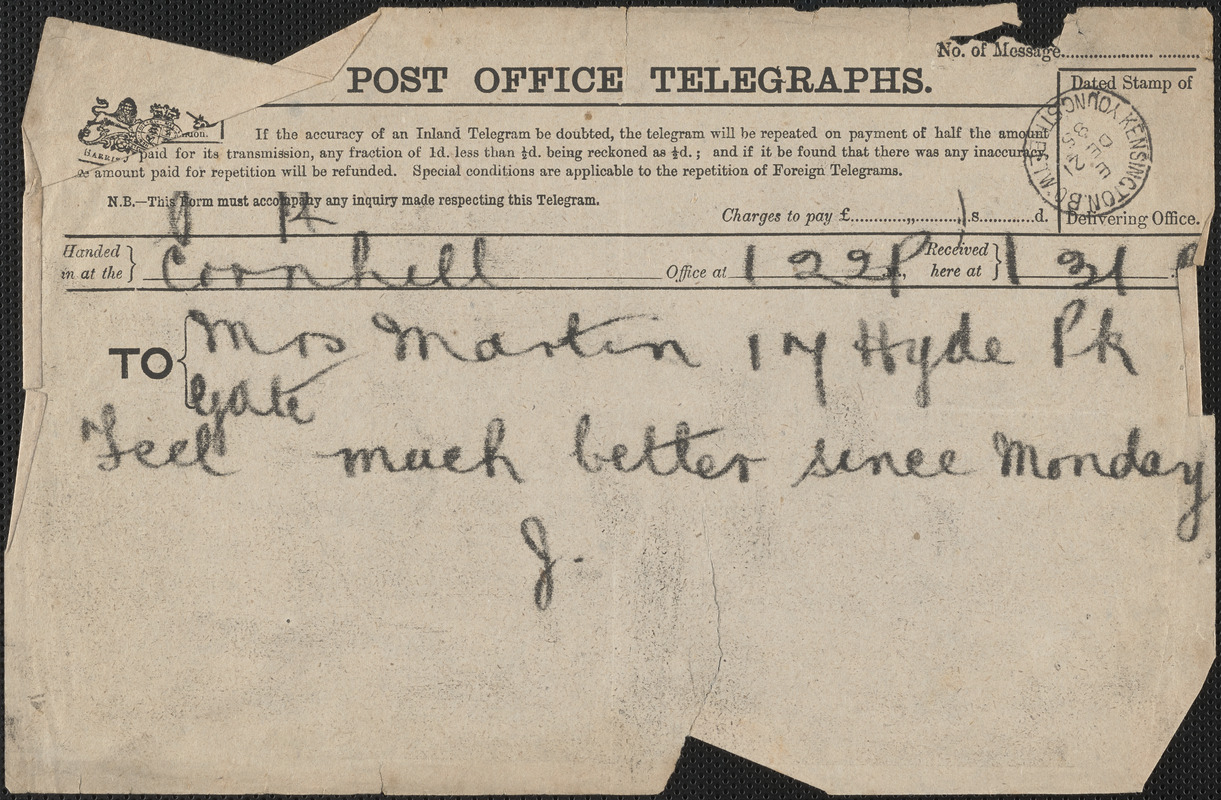 No. of Message
POST OFFICE TELEGRAPHS.
Dated Stamp of
If the accuracy of an Inland Telegram be doubted, the telegram will be repeated on payment of half the amount
paid for its transmission, any fraction of 1d. less than ½d. being reckoned as ½d. ; and if it be found that there was any inaccuracy,
amount paid for repetition will be refunded. Special conditions are applicable to the repetition of Foreign Telegrams.
N.B.—This Form must accompany any inquiry made respecting this Telegram.
Charges to pay £ s. d.
Delivering Office.
YOUNG STREET KENSINGTON.B.O.W.
DE 21
Handed in at the } Cornhill Office at 1 22 P Received here at } 1 31 P
TO { Mrs Martin 17 Hyde Pk
Gate
Feel much better since Monday
J.